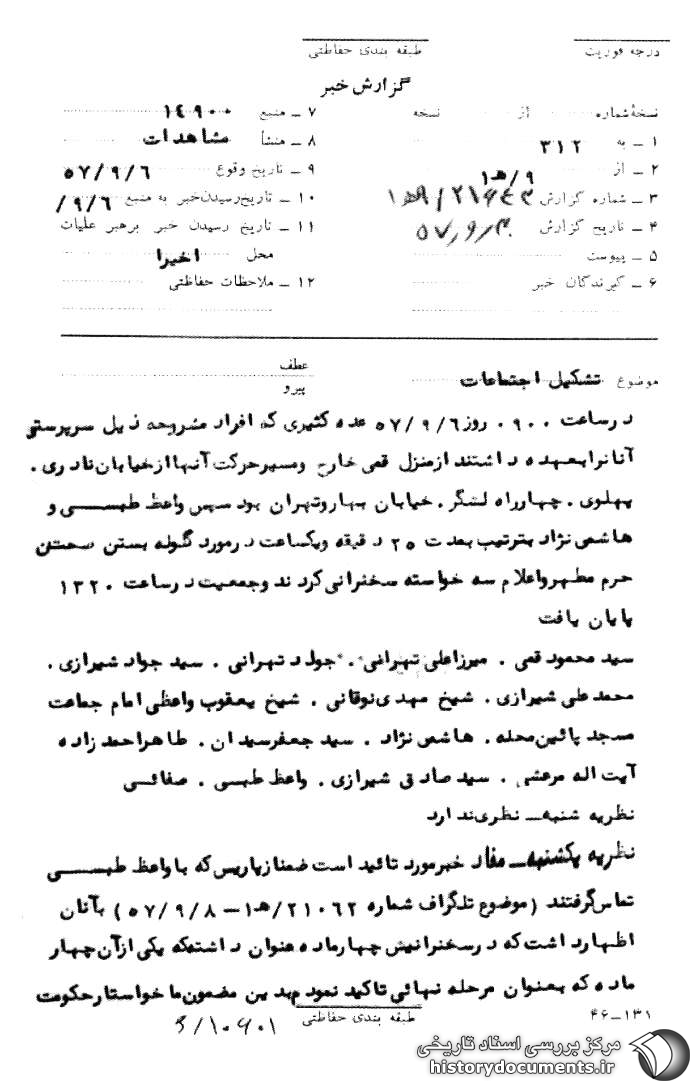 درجه فوریت
طبقه بندی حفاظتی
گزارش خبر
نسخهٔ شماره از نسخه
۱ ــ به ۳۱۲
۲ ــ از ۹/هـ۱
۳ ــ شماره گزارش
۴ ــ تاریخ گزارش
۵ ــ پیوست
۶ ــ گیرندگان خبر
۷ ــ منبع ۱۴۹۰۰
۸ ــ منشأ مشاهدات
۹ ــ تاریخ وقوع ۵۷/۹/۶
۱۰ ــ تاریخ رسیدن خبر به منبع ۹/۶/
۱۱ ــ تاریخ رسیدن خبر برهبر عملیات
محل اخیرا
۱۲ ــ ملاحظات حفاظتی
موضوع تشکیل اجتماعات
عطف
پیرو
درساعت ۰۹۰۰ روز ۵۷/۹/۶ عده کثیری که افراد مشروحه ذیل سرپرستی
آنانرابعهده داشتند ازمنزل قمی خارج ومسیرحرکت آنها ازخیابان نادری .
پهلوی . چهارراه لشگر . خیابان بهاروتهران بود سپس واعظ طبسی و
هاشمی نژاد بترتیب بمدت ۲۵ دقیقه ویکساعت درمورد گلوله بستن صحن
حرم مطهرواعلام سه خواسته سخنرانی کردند وجمعیت درساعت ۱۳۲۰
پایان یافت
سید محمود قمی . میرزاعلی تهرانی . جواد تهرانی . سید جواد شیرازی .
محمد علی شیرازی . شیخ مهدی نوقانی . شیخ یعقوب واعظی امام جماعت
مسجد پائین محله . هاشمی نژاد . سید جعفرسیدان . طاهراحمد زاده
آیت اله مرعشی . سید صادق شیرازی . واعظ طبسی . صفائی
نظریه شنبه ــ نظری ندارد
نظریه یکشنبه ــ مفاد خبرمورد تائید است ضمنا زپاریس که با واعظ طبسی
تماس گرفتند (موضوع تلگراف شماره ۲۱۰۶۲/هـ۱ــ۵۷/۹/۸) بآنان
اظهارد اشت که درسخنرانیش چهارماده عنوان داشته که یکی ازآن چهار
ماده که بعنوان مرحله نهائی تاکید نمود بدین مضمون ما خواستارحکومت
طبقه بندی حفاظتی
۱۳۱ــ۴۶
مرکز بررسی اسناد تاریخی
historydocuments.ir